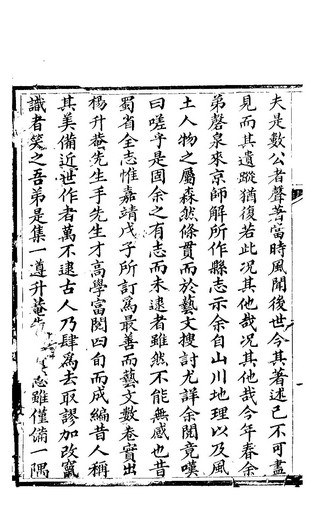 夫是數公者聲著當時風聞後世今其著述已不可盡
見而其遺蹤猶復若此況其他哉況其他哉今年春余
弟磬泉來京師解所作縣志示余自山川地理以及風
土人物之屬森然條貫而於藝文搜討尤詳余閱竟嘆
曰嗟乎是固余之有志而未逮者雖然不能無感也昔
蜀省全志惟嘉靖戊子所訂爲最善而藝文數卷實出
楊升菴先生手先生才高學富閱四旬而成編昔人稱
其美備近世作者萬不逮古人乃肆爲去取謬加改竄
識者笑之吾弟是集一遵升菴 志雖僅備一隅